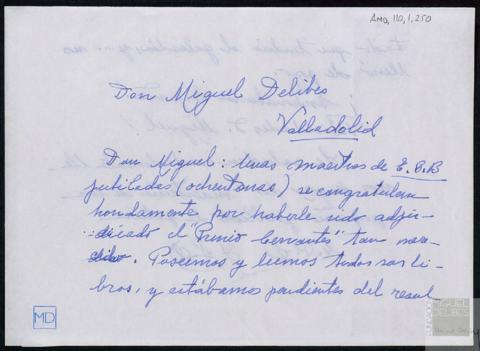 AMD, 110, 1, 250
Don Miguel Delibes
Valladolid
Don Miguel: unas maestras de E.G.B
jubiladas (ochentonas) se congratulan
hondamente por haberle sido adju-
dicado el "Premio Cervantes" tan mere-
cido. Poseemos y leemos todos sus li-
bros, y estábamos pendientes del resul-
MD
FUNDACIÓN
MIGUEL
DELIBES